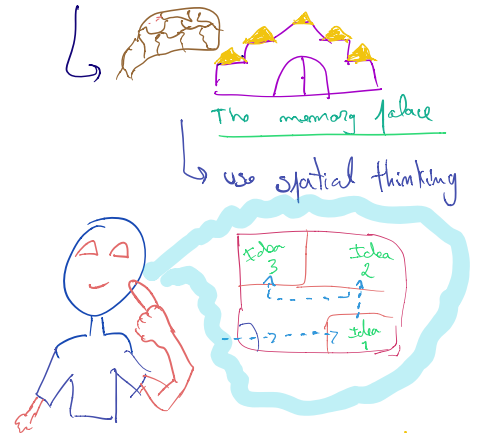 The memory palace
use spatial thinking
Idea
3
Idea
2
Idea
1